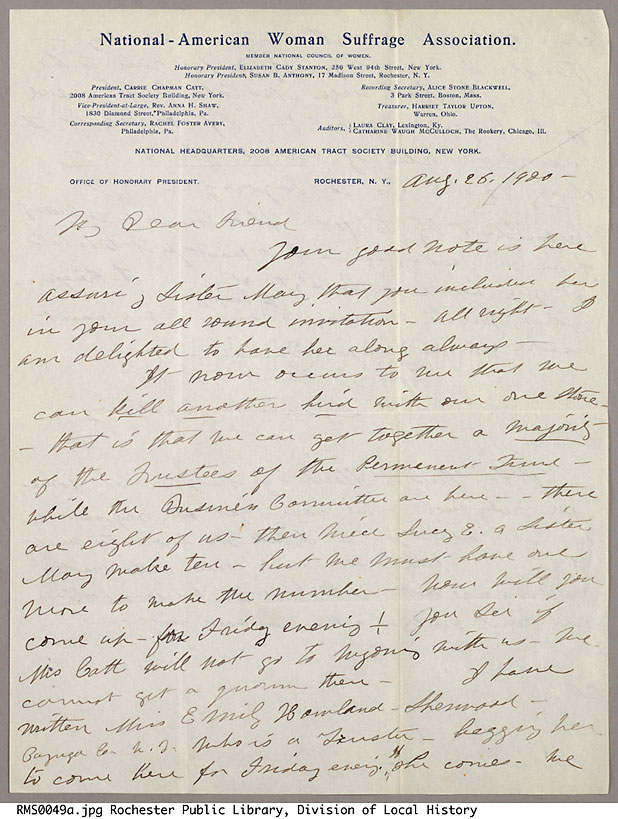 National-American Woman Suffrage Association.
MEMBER NATIONAL COUNCIL OF WOMEN.
Honorary President, ELIZABETH CADY STANTON, 250 West 94th Street, New York.
Honorary President, SUSAN B. ANTHONY, 17 Madison Street, Rochester, N. Y.
President, CARRIE CHAPMAN CATT,
2008 American Tract Society Building, New York.
Vice-President-at-Large, REV. ANNA H. SHAW,
1830 Diamond Street, Philadelphia, Pa.
Corresponding Secretary, RACHEL FOSTER AVERY,
Philadelphia, Pa.
Recording Secretary, ALICE STONE BLACKWELL,
3 Park Street, Boston, Mass.
Treasurer, HARRIET TAYLOR UPTON,
Warren, Ohio.
Auditors, { LAURA CLAY, Lexington, Ky.
CATHARINE WAUGH McCULLOCH, The Rookery, Chicago, Ill.
NATIONAL HEADQUARTERS, 2008 AMERICAN TRACT SOCIETY BUILDING, NEW YORK.
OFFICE OF HONORARY PRESIDENT.
ROCHESTER, N. Y., Aug. 26, 1900 -
My Dear Friend
Your good note is here
assuring Sister Mary that you included her
in your all round invitation - all right - I
am delighted to have her along always -
It now occurs to me that we
can kill another bird with our one stone -
- that is that we can get together a majority
of the Trustees of the Permanent Fund -
while the Business Committee are here - - there
are eight of us - then niece Lucy E. & Sister
Mary make ten - but we must have one
more to make the number - now will you
come up - for Friday evening! You see if
Mrs Catt will not go to with us - we
cannot get a quorum then - I have
written Miss Emily Howland - Sherwood -
Cayuga Co. N. Y. who is a Trustee - begging her
to come here for Friday eveng, if she comes - we
RMS0049a.jpg Rochester Public Library, Division of Local History